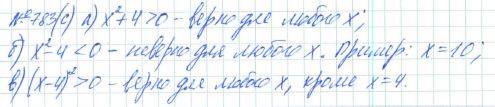 №783(с) а) x²+4>0 – верно для любого x;
б) x²-4<0 – неверно для любого x. Пример: x=10;
в) (x-4)²>0 – верно для любого x, кроме x=4.